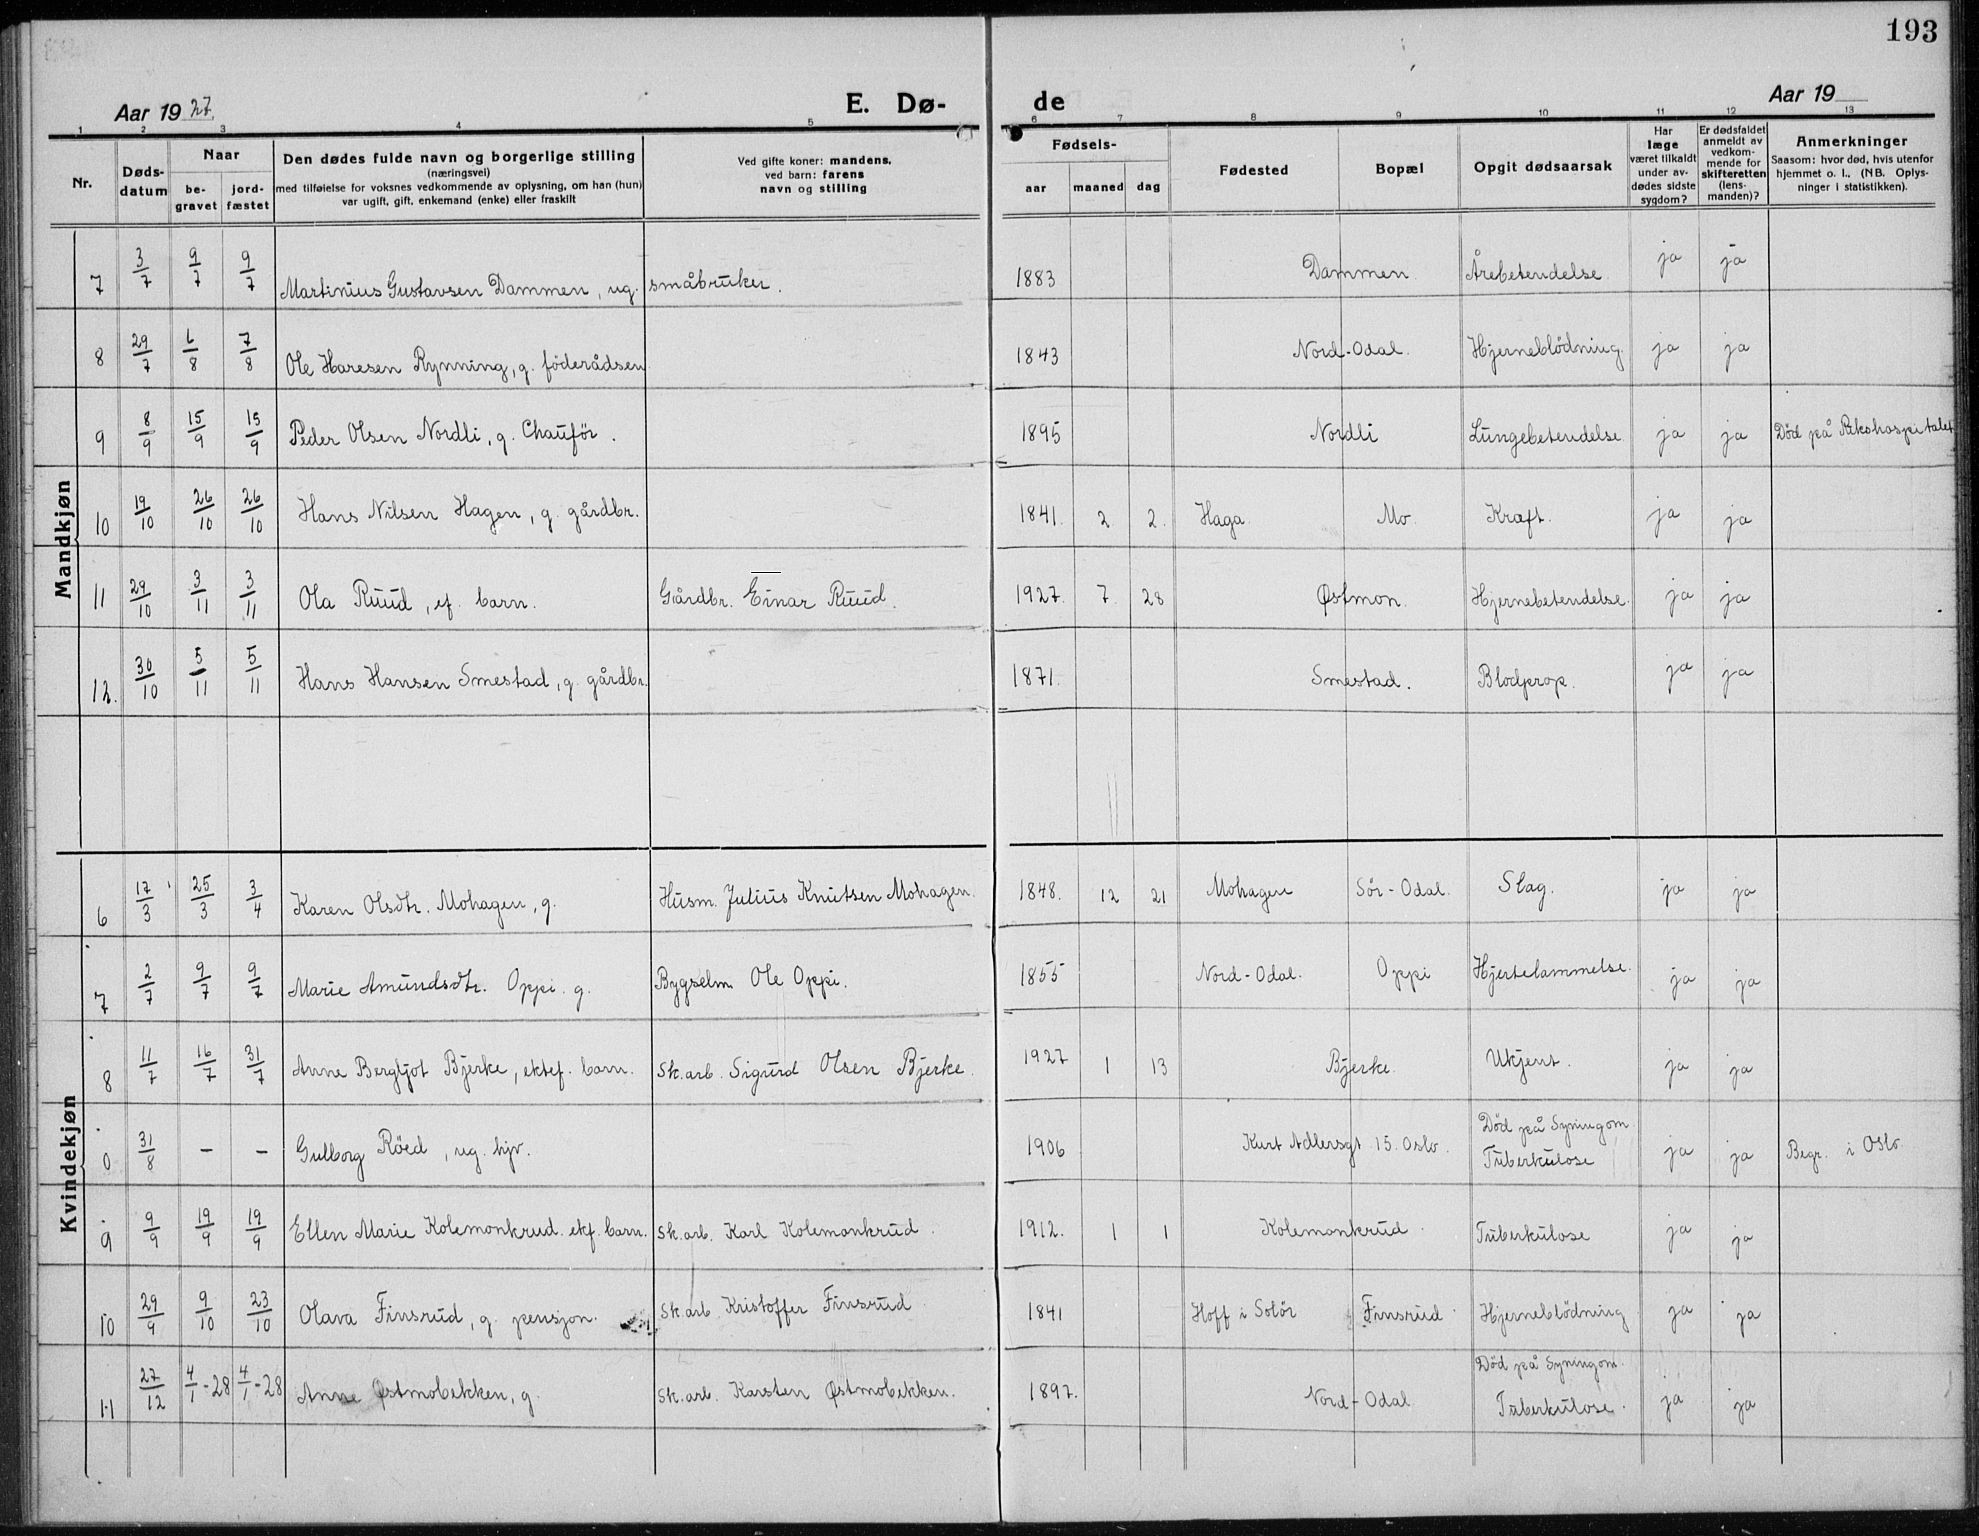 193
Aar 1927. E. Dø- de Aar 19
1 2 3 4 5 6 7 8 9 10 11 12 13
Nr. Døds-datum Naar be-gravet jord-fæstet Den dødes fulde navn og borgerlige stilling (næringsvei) med tilføielse for voksnes vedkommende av oplysning, om han (hun) var ugift, gift, enkemand (enke) eller fraskilt Ved gifte koner: mandens, ved barn: farens navn og stilling Fødsels- aar maaned dag Fødested Bopæl Opgit dødsaarsak Har læge været tilkaldt under av-dødes sidste sygdom? Er dødsfaldet anmeldt av vedkom-mende for skifteretten (lens-manden)? Anmerkninger Saasom: hvor død, hvis utenfor hjemmet o. l., (NB. Oplys-ninger i statistikken).
Mandkjøn
7 3/7 9/7 9/7 Martinius Gustavsen Dammen, ug. småbruker. 1883 Dammen. Årebetendelse ja ja
8 29/7 6/8 7/8 Ole Haresen Rynning, g. föderådsen 1843 Nord-Odal. Hjerneblödning. ja ja
9 8/9 15/9 15/9 Peder Olsen Nordli, g. Chauför. 1895 Nordli Lungebetendelse ja ja Död på Rikshospitalet
10 19/10 26/10 26/10 Hans Nilsen Hagen, g. gårdbr. 1841. 2 2. Haga. Mo. Kræft. ja ja
11 29/10 3/11 3/11 Ola Ruud, ef. barn. Gårdbr. Einar Ruud. 1927. 7. 28 Østmon. Hjernebetendelse. ja ja
12. 30/10 5/11 5/11 Hans Hansen Smestad, g. gårdbr. 1871. Smestad. Blodprop. ja ja
Kvindekjøn
6 17/3 25/3 3/4 Karen Olsdtr. Mohagen, g. Husm. Julius Knutsen Mohagen. 1848. 12 21 Mohagen Sör-Odal. Slag. ja ja
7 2/7 9/7 9/7 Marie Amundsdtr. Oppi. g. Bygselm. Ole Oppi. 1855 Nord-Odal. Oppi Hjertelammelse. ja ja
8 11/7 16/7 31/7 Anne Bergljot Bjerke, ektef. barn. Sk.arb. Sigurd Olsen Bjerke. 1927 1 13 Bjerke. Ukjent. ja ja
0 31/8 - - Gulborg Röed, ug. hjv. 1906 Kurt Adlersgt 15. Oslo. Död på Syningom Tuberkulose ja ja Begr. i Oslo
9 9/9 19/9 19/9 Ellen Marie Kolemonkrud. ekf. barn. Sk.arb. Karl Kolemonkrud. 1912. 1 1 Kolemonkrud. Tuberkulose ja ja
10 29/9 9/10 23/10 Olava Finsrud, g. pensjon. Sk.arb. Kristoffer Finsrud 1841 Hoff i Solör Finsrud. Hjerneblödning ja ja
11 27/12 4/1-28 4/1-28 Anne Østmobekken, g. Sk.arb. Karsten Østmobekken. 1897. Nord-Odal Död på Syningom. Tuberkulose. ja ja